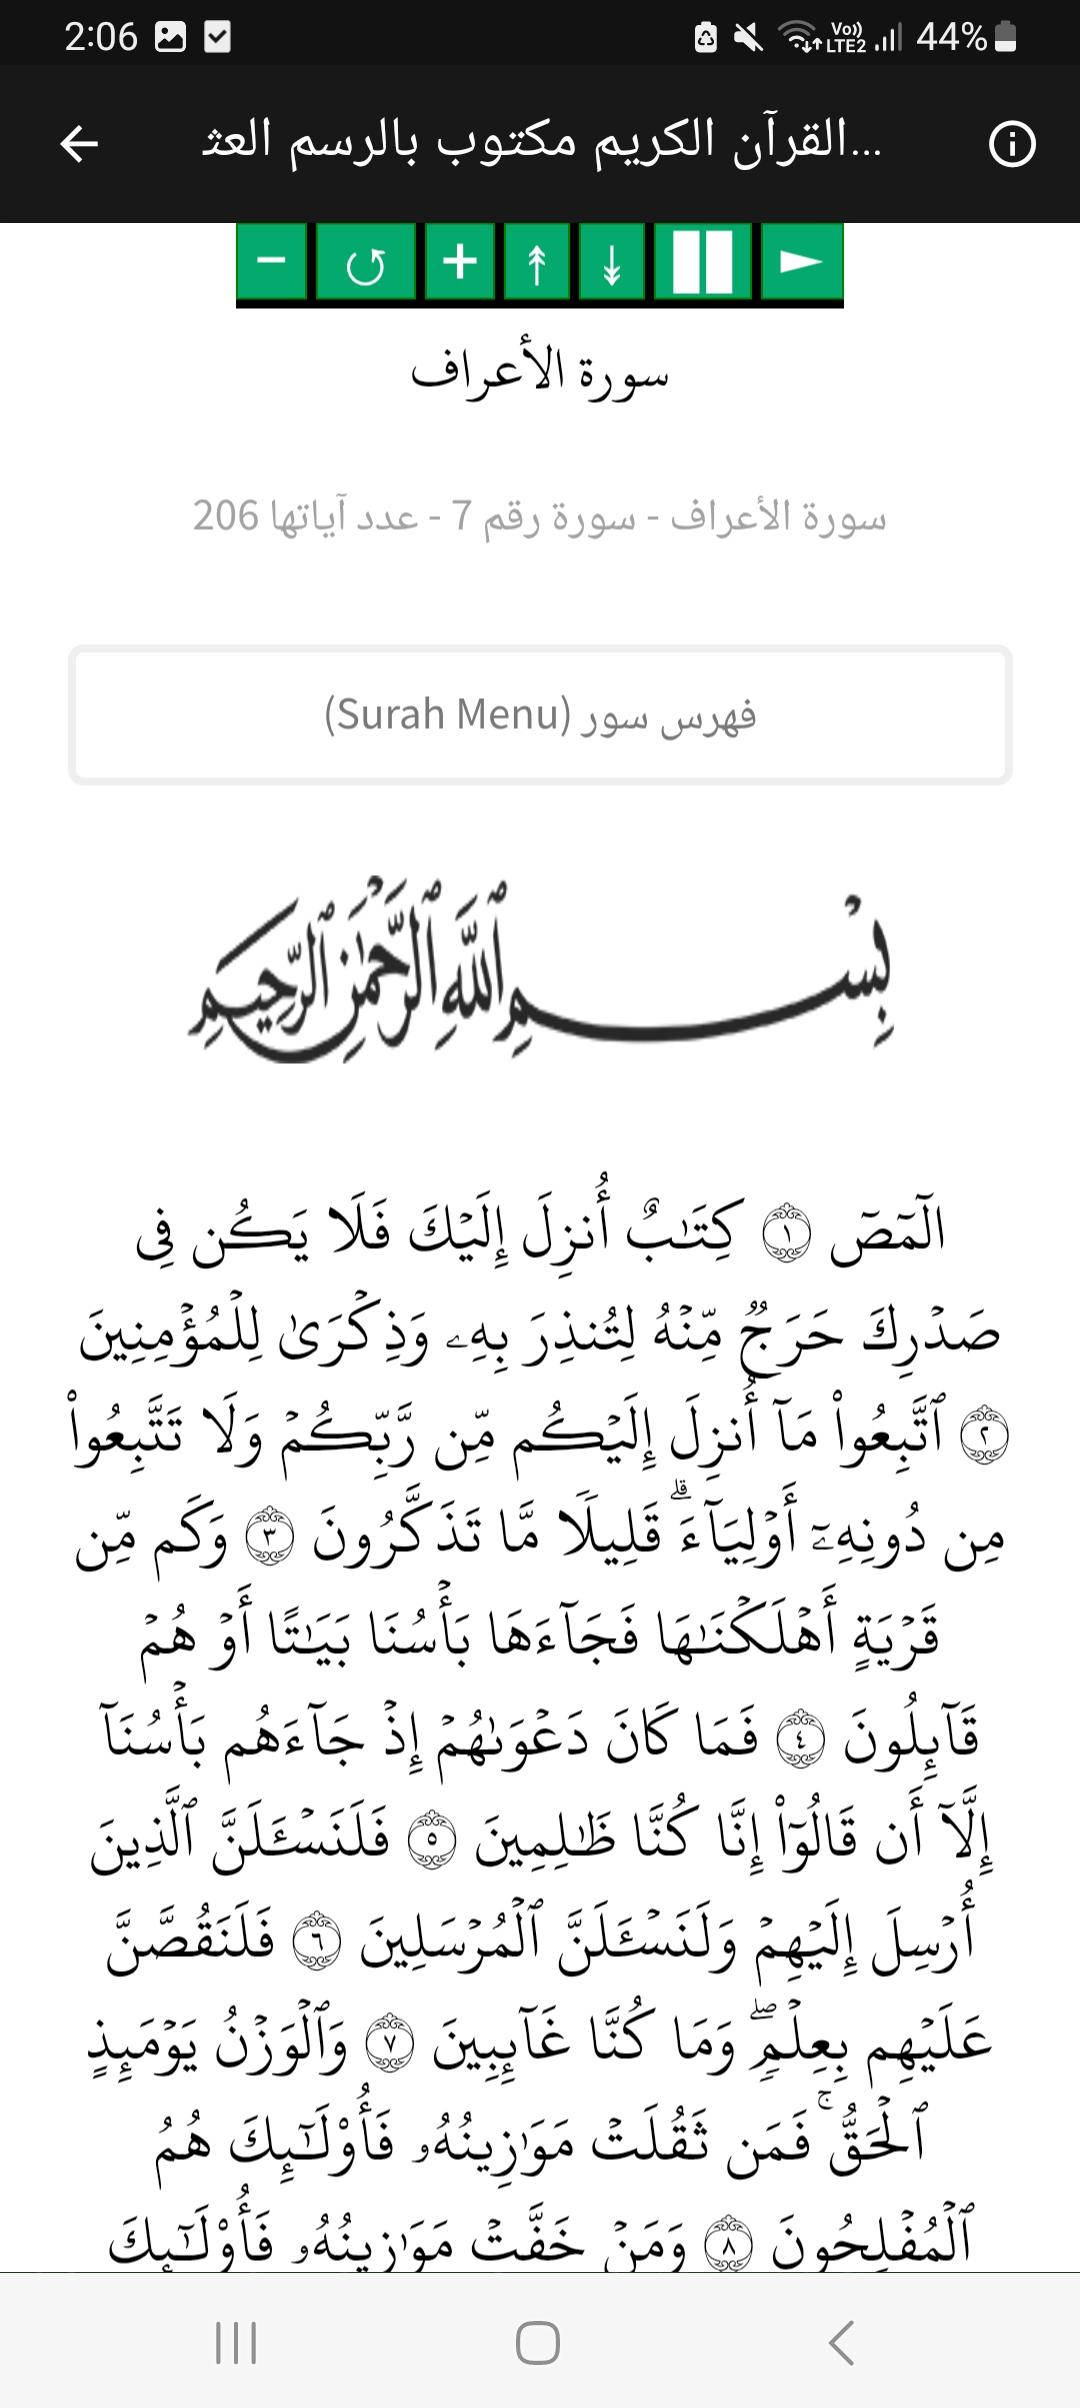 2:06 Vo)) LTE2 44%
القرآن الكريم مكتوب بالرسم العث...
سورة الأعراف
سورة الأعراف - سورة رقم 7 - عدد آياتها 206
فهرس سور (Surah Menu)
بِسْمِ ٱللَّهِ ٱلرَّحْمَٰنِ ٱلرَّحِيمِ
الٓمٓصٓ ١ كِتَٰبٌ أُنزِلَ إِلَيۡكَ فَلَا يَكُن فِي
صَدۡرِكَ حَرَجٞ مِّنۡهُ لِتُنذِرَ بِهِۦ وَذِكۡرَىٰ لِلۡمُؤۡمِنِينَ
٢ ٱتَّبِعُواْ مَآ أُنزِلَ إِلَيۡكُم مِّن رَّبِّكُمۡ وَلَا تَتَّبِعُواْ
مِن دُونِهِۦٓ أَوۡلِيَآءَۗ قَلِيلٗا مَّا تَذَكَّرُونَ ٣ وَكَم مِّن
قَرۡيَةٍ أَهۡلَكۡنَٰهَا فَجَآءَهَا بَأۡسُنَا بَيَٰتًا أَوۡ هُمۡ
قَآئِلُونَ ٤ فَمَا كَانَ دَعۡوَىٰهُمۡ إِذۡ جَآءَهُم بَأۡسُنَآ
إِلَّآ أَن قَالُوٓاْ إِنَّا كُنَّا ظَٰلِمِينَ ٥ فَلَنَسۡـَٔلَنَّ ٱلَّذِينَ
أُرۡسِلَ إِلَيۡهِمۡ وَلَنَسۡـَٔلَنَّ ٱلۡمُرۡسَلِينَ ٦ فَلَنَقُصَّنَّ
عَلَيۡهِم بِعِلۡمٖۖ وَمَا كُنَّا غَآئِبِينَ ٧ وَٱلۡوَزۡنُ يَوۡمَئِذٍ
ٱلۡحَقُّۚ فَمَن ثَقُلَتۡ مَوَٰزِينُهُۥ فَأُوْلَٰٓئِكَ هُمُ
ٱلۡمُفۡلِحُونَ ٨ وَمَنۡ خَفَّتۡ مَوَٰزِينُهُۥ فَأُوْلَٰٓئِكَ